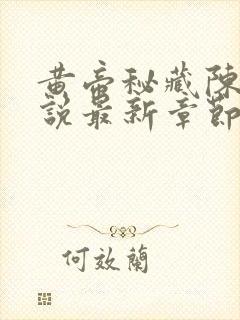 黄帝秘藏陳
說最新章節
何效蘭